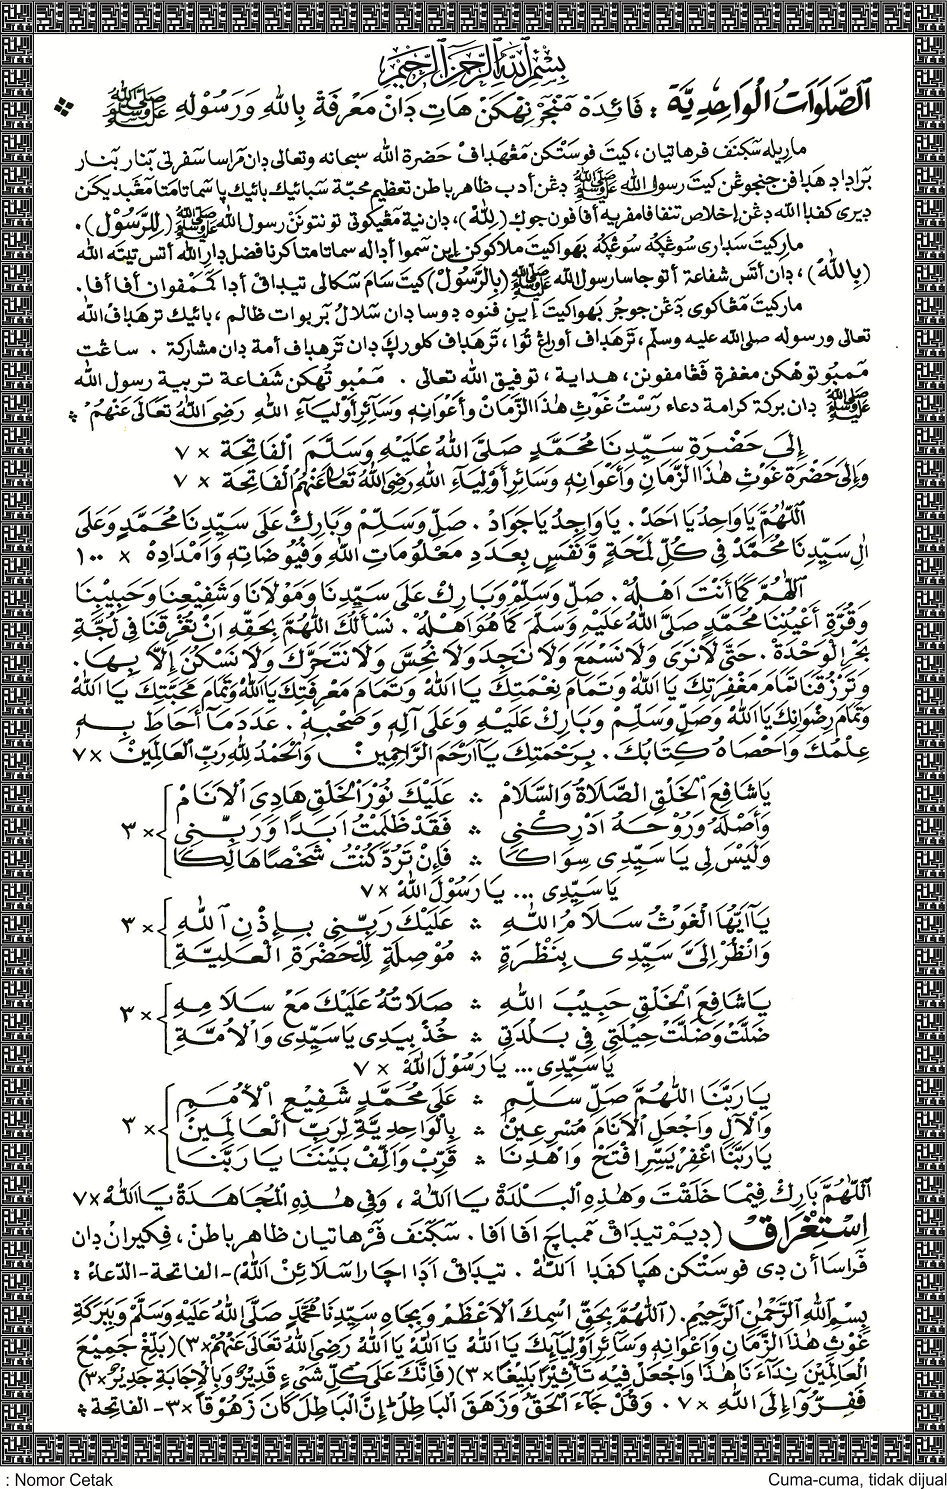 بِسْمِ اللهِ الرَّحْمٰنِ الرَّحِيْمِ
اَلصَّلَوَاتُ الْوَاحِدِيَّةُ : فَائِدَهْ مَنْجَرْنِهْكَنْ هَاتِ دَانْ مَعْرِفَةْ بِاللهِ وَرَسُوْلِهِ ﷺ
ماريله سكنف فرهاتيان، كيت فوستكن مڠهداف حضرة الله سبحانه وتعالى دان مراسا سفرتي بنار بنار
برادا دهدافن جنجوڠن كيت رسول الله ﷺ دڠن أدب ظاهر باطن تعظيم محبة سبائيك بائيك پا سمات متا مڠبديكن
ديري كفدا الله دڠن إخلاص تنفا فامريه أفا فون جوك (لِلّٰهْ)، دان نية مڠيكوتي تونتونن رسول الله ﷺ (لِلرَّسُوْلْ).
ماركيت سداري سوڠڮه سوڠڮه بهوا كيت ملاكوكن اين سموا أداله سمات متا كرنا فضل دار الله أتس تيته الله
(بِاللهْ)، دان أتس شفاعة أتو جاسا رسول الله ﷺ (بِالرَّسُوْلْ) كيت سام سكالي تيداق أدا كممفوان أفا أفا.
ماركيت مڠاكوي دڠن جوجر بهوا كيت اين فنوه دوسا دان سلالُ بربوات ظالم، بائيك ترهداف الله
تعالى ورسوله صلى الله عليه وسلم، ترهداف أوراڠ توا، ترهداف كلورڮ دان ترهداف أمة دان مشاركة. ساڠت
ممبوتوهكن مغفرة فڠامفونن، هداية، توفيق الله تعالى. ممبوتهكن شفاعة تربية رسول الله
ﷺ دان بركة كرامة دعاء رستُ غَوْثِ هٰذَا الزَّمَانْ وَأَعْوَانِهِ وَسَائِرِ أَوْلِيَآءِ اللهِ رَضِيَ اللهُ تَعَالَى عَنْهُمْ
إِلَى حَضْرَةِ سَيِّدِنَا مُحَمَّدٍ صَلَّى اللهُ عَلَيْهِ وَسَلَّمَ الْفَاتِحَةْ × ٧
وَإِلَى حَضْرَةِ غَوْثِ هٰذَا الزَّمَانِ وَأَعْوَانِهِ وَسَائِرِ أَوْلِيَآءِ اللهِ رَضِيَ اللهُ تَعَالَى عَنْهُمُ الْفَاتِحَةْ × ٧
اَللّٰهُمَّ يَا وَاحِدُ يَا اَحَدْ. يَا وَاجِدُ يَا جَوَادْ. صَلِّ وَسَلِّمْ وَبَارِكْ عَلَى سَيِّدِنَا مُحَمَّدٍ وَعَلَى
اٰلِ سَيِّدِنَا مُحَمَّدْ فِي كُلِّ لَمْحَةٍ وَّنَفَسٍ بِعَدَدِ مَعْلُوْمَاتِ اللهِ وَفُيُوْضَاتِهِ وَاَمْدَادِهْ × ١٠٠
اَللّٰهُمَّ كَمَا اَنْتَ اَهْلُهْ. صَلِّ وَسَلِّمْ وَبَارِكْ عَلَى سَيِّدِنَا وَمَوْلَانَا وَشَفِيْعِنَا وَحَبِيْبِنَا
وَقُرَّةِ أَعْيُنِنَا مُحَمَّدٍ صَلَّى اللهُ عَلَيْهِ وَسَلَّمَ كَمَا هُوَ اَهْلُهْ. نَسْأَلُكَ اللّٰهُمَّ بِحَقِّهِ اَنْ تُغْرِقَنَا فِي لُجَّةِ
بَحْرِ الْوَحْدَةْ. حَتَّى لَا نَرَى وَلَا نَسْمَعَ وَلَا نَجِدَ وَلَا نُحِسَّ وَلَا نَتَحَرَّكَ وَلَا نَسْكُنَ إِلَّا بِهَا.
وَتَرْزُقَنَا تَمَامَ مَغْفِرَتِكَ يَا اَللهُ وَتَمَامَ نِعْمَتِكَ يَا اَللهُ وَتَمَامَ مَعْرِفَتِكَ يَا اَللهُ وَتَمَامَ مَحَبَّتِكَ يَا اَللهُ
وَتَمَامَ رِضْوَانِكَ يَا اَللهُ وَصَلِّ وَسَلِّمْ وَبَارِكْ عَلَيْهِ وَعَلَى آلِهِ وَصَحْبِهْ. عَدَدَ مَا أَحَاطَ بِهِ
عِلْمُكَ وَاَحْصَاهُ كِتَابُكَ. بِرَحْمَتِكَ يَا اَرْحَمَ الرَّاحِمِيْنَ وَالْحَمْدُ لِلّٰهِ رَبِّ الْعَالَمِيْنَ × ٧
يَا شَافِعَ الْخَلْقِ الصَّلَاةُ وَالسَّلَامْ ❖ عَلَيْكَ نُوْرَ الْخَلْقِ هَادِيَ الْاَنَامْ
وَأَصْلَهُ وَرُوْحَهُ اَدْرِكْنِي ❖ فَقَدْ ظَلَمْتُ اَبَدًا وَرَبِّنِي × ٣
وَلَيْسَ لِي يَا سَيِّدِي سِوَاكَا ❖ فَإِنْ تَرُدَّ كُنْتُ شَخْصًا هَالِكَا
يَا سَيِّدِي ... يَا رَسُوْلَ اللهْ × ٧
يَآ اَيُّهَا الْغَوْثُ سَلَامُ اللهِ ❖ عَلَيْكَ رَبِّنِي بِإِذْنِ اللهِ × ٣
وَانْظُرْ اِلَيَّ سَيِّدِي بِنَظْرَةٍ ❖ مُوْصِلَةٍ لِلْحَضْرَةِ الْعَلِيَّةِ
يَا شَافِعَ الْخَلْقِ حَبِيْبَ اللهِ ❖ صَلَاتُهُ عَلَيْكَ مَعْ سَلَامِهِ × ٣
ضَلَّتْ وَضَلَّتْ حِيْلَتِي فِي بَلْدَتِي ❖ خُذْ بِيَدِي يَا سَيِّدِي وَالْاُمَّةِ
يَا سَيِّدِي ... يَا رَسُوْلَ اللهْ × ٧
يَا رَبَّنَا اللّٰهُمَّ صَلِّ سَلِّمِ ❖ عَلَى مُحَمَّدٍ شَفِيْعِ الْاُمَمِ
وَالْاٰلِ وَاجْعَلِ الْاَنَامَ مُسْرِعِيْنَ ❖ بِالْوَاحِدِيَّةِ لِرَبِّ الْعَالَمِيْنَ × ٣
يَا رَبَّنَا اغْفِرْ يَسِّرِ افْتَحْ وَاهْدِنَا ❖ قَرِّبْ وَاَلِّفْ بَيْنَنَا يَا رَبَّنَا
اَللّٰهُمَّ بَارِكْ فِيْمَا خَلَقْتَ وَهٰذِهِ الْبَلْدَةْ يَا اَللهْ، وَفِي هٰذِهِ الْمُجَاهَدَةْ يَا اَللهْ × ٧
اِسْتِغْرَاقْ (ديم تيداق ممباچ افا افا. سكنف فرهاتيان ظاهر باطن، فكيران دان
فراسأن دي فوستكن هيا كفدا اَللهْ. تيداق ادا اچارا سلائن اللهْ) - الفاتحة - الدعاء :
بِسْمِ اللهِ الرَّحْمٰنِ الرَّحِيْمِ. (اَللّٰهُمَّ بِحَقِّ اسْمِكَ الْاَعْظَمْ وَبِجَاهِ سَيِّدِنَا مُحَمَّدٍ صَلَّى اللهُ عَلَيْهِ وَسَلَّمْ وَبِبَرَكَةِ
غَوْثِ هٰذَا الزَّمَانِ وَاَعْوَانِهِ وَسَائِرِ اَوْلِيَآئِكَ يَا اَللهُ يَا اَللهُ يَا اَللهُ رَضِيَ اللهُ تَعَالَى عَنْهُمْ ×٣) (بَلِّغْ جَمِيْعَ
الْعَالَمِيْنَ نِدَآءَنَا هٰذَا وَاجْعَلْ فِيْهِ تَأْثِيْرًا بَلِيْغًا ×٣) (فَإِنَّكَ عَلَى كُلِّ شَيْءٍ قَدِيْرٌ وَبِالْإِجَابَةِ جَدِيْرٌ ×٣)
فَفِرُّوْآ إِلَى اللهِ × ٧. وَقُلْ جَآءَ الْحَقُّ وَزَهَقَ الْبَاطِلُ إِنَّ الْبَاطِلَ كَانَ زَهُوْقًا × ٣ - الفاتحة
: Nomor Cetak
Cuma-cuma, tidak dijual